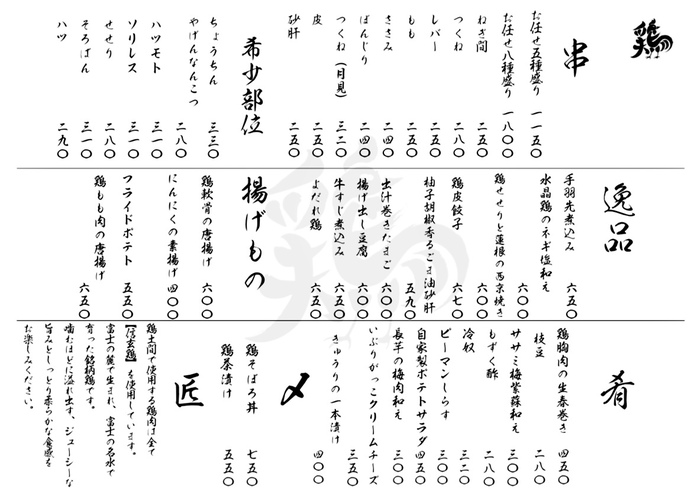 鶏
串
お任せ五種盛り 一一五〇
お任せ八種盛り 一八〇〇
ねぎ間 二五〇
つくね 二八〇
レバー 二五〇
もも 二五〇
ささみ 二四〇
ぼんじり 二四〇
つくね(月見) 三二〇
皮 二五〇
砂肝 二五〇
希少部位
ちょうちん 三三〇
やげんなんこつ 二八〇
ハツモト 三一〇
ソリレス 三一〇
せせり 二八〇
そろばん 三一〇
ハツ 二九〇
逸品
手羽先煮込み 六五〇
水晶鶏のネギ塩和え 六〇〇
鶏せせりと蓮根の西京焼き 六〇〇
鶏皮餃子 六七〇
柚子胡椒香るごま油砂肝 五九〇
出汁巻きたまご 六〇〇
揚げ出し豆腐 六〇〇
牛すじ煮込み 六五〇
よだれ鶏 六五〇
揚げもの
鶏軟骨の唐揚げ 六〇〇
にんにくの素揚げ 四〇〇
フライドポテト 五五〇
鶏もも肉の唐揚げ 六五〇
肴
鶏胸肉の生春巻き 四五〇
枝豆 二八〇
ササミ梅紫蘇和え 三〇〇
もずく酢 二八〇
冷奴 三二〇
ピーマンしらす 三〇〇
自家製ポテトサラダ 四五〇
長芋の梅肉和え 三〇〇
いぶりがっこクリームチーズ 三五〇
きゅうりの一本漬け 四〇〇
〆
鶏そぼろ丼 七五〇
鶏茶漬け 五五〇
匠
鶏土間で使用する鶏肉は全て
【信玄鶏】を使用しています。
富士の麓で生まれ、富士の名水で
育った銘柄鶏です。
噛むほどに溢れ出す、ジューシーな
旨みとしっとり柔らかな食感を
お楽しみください。